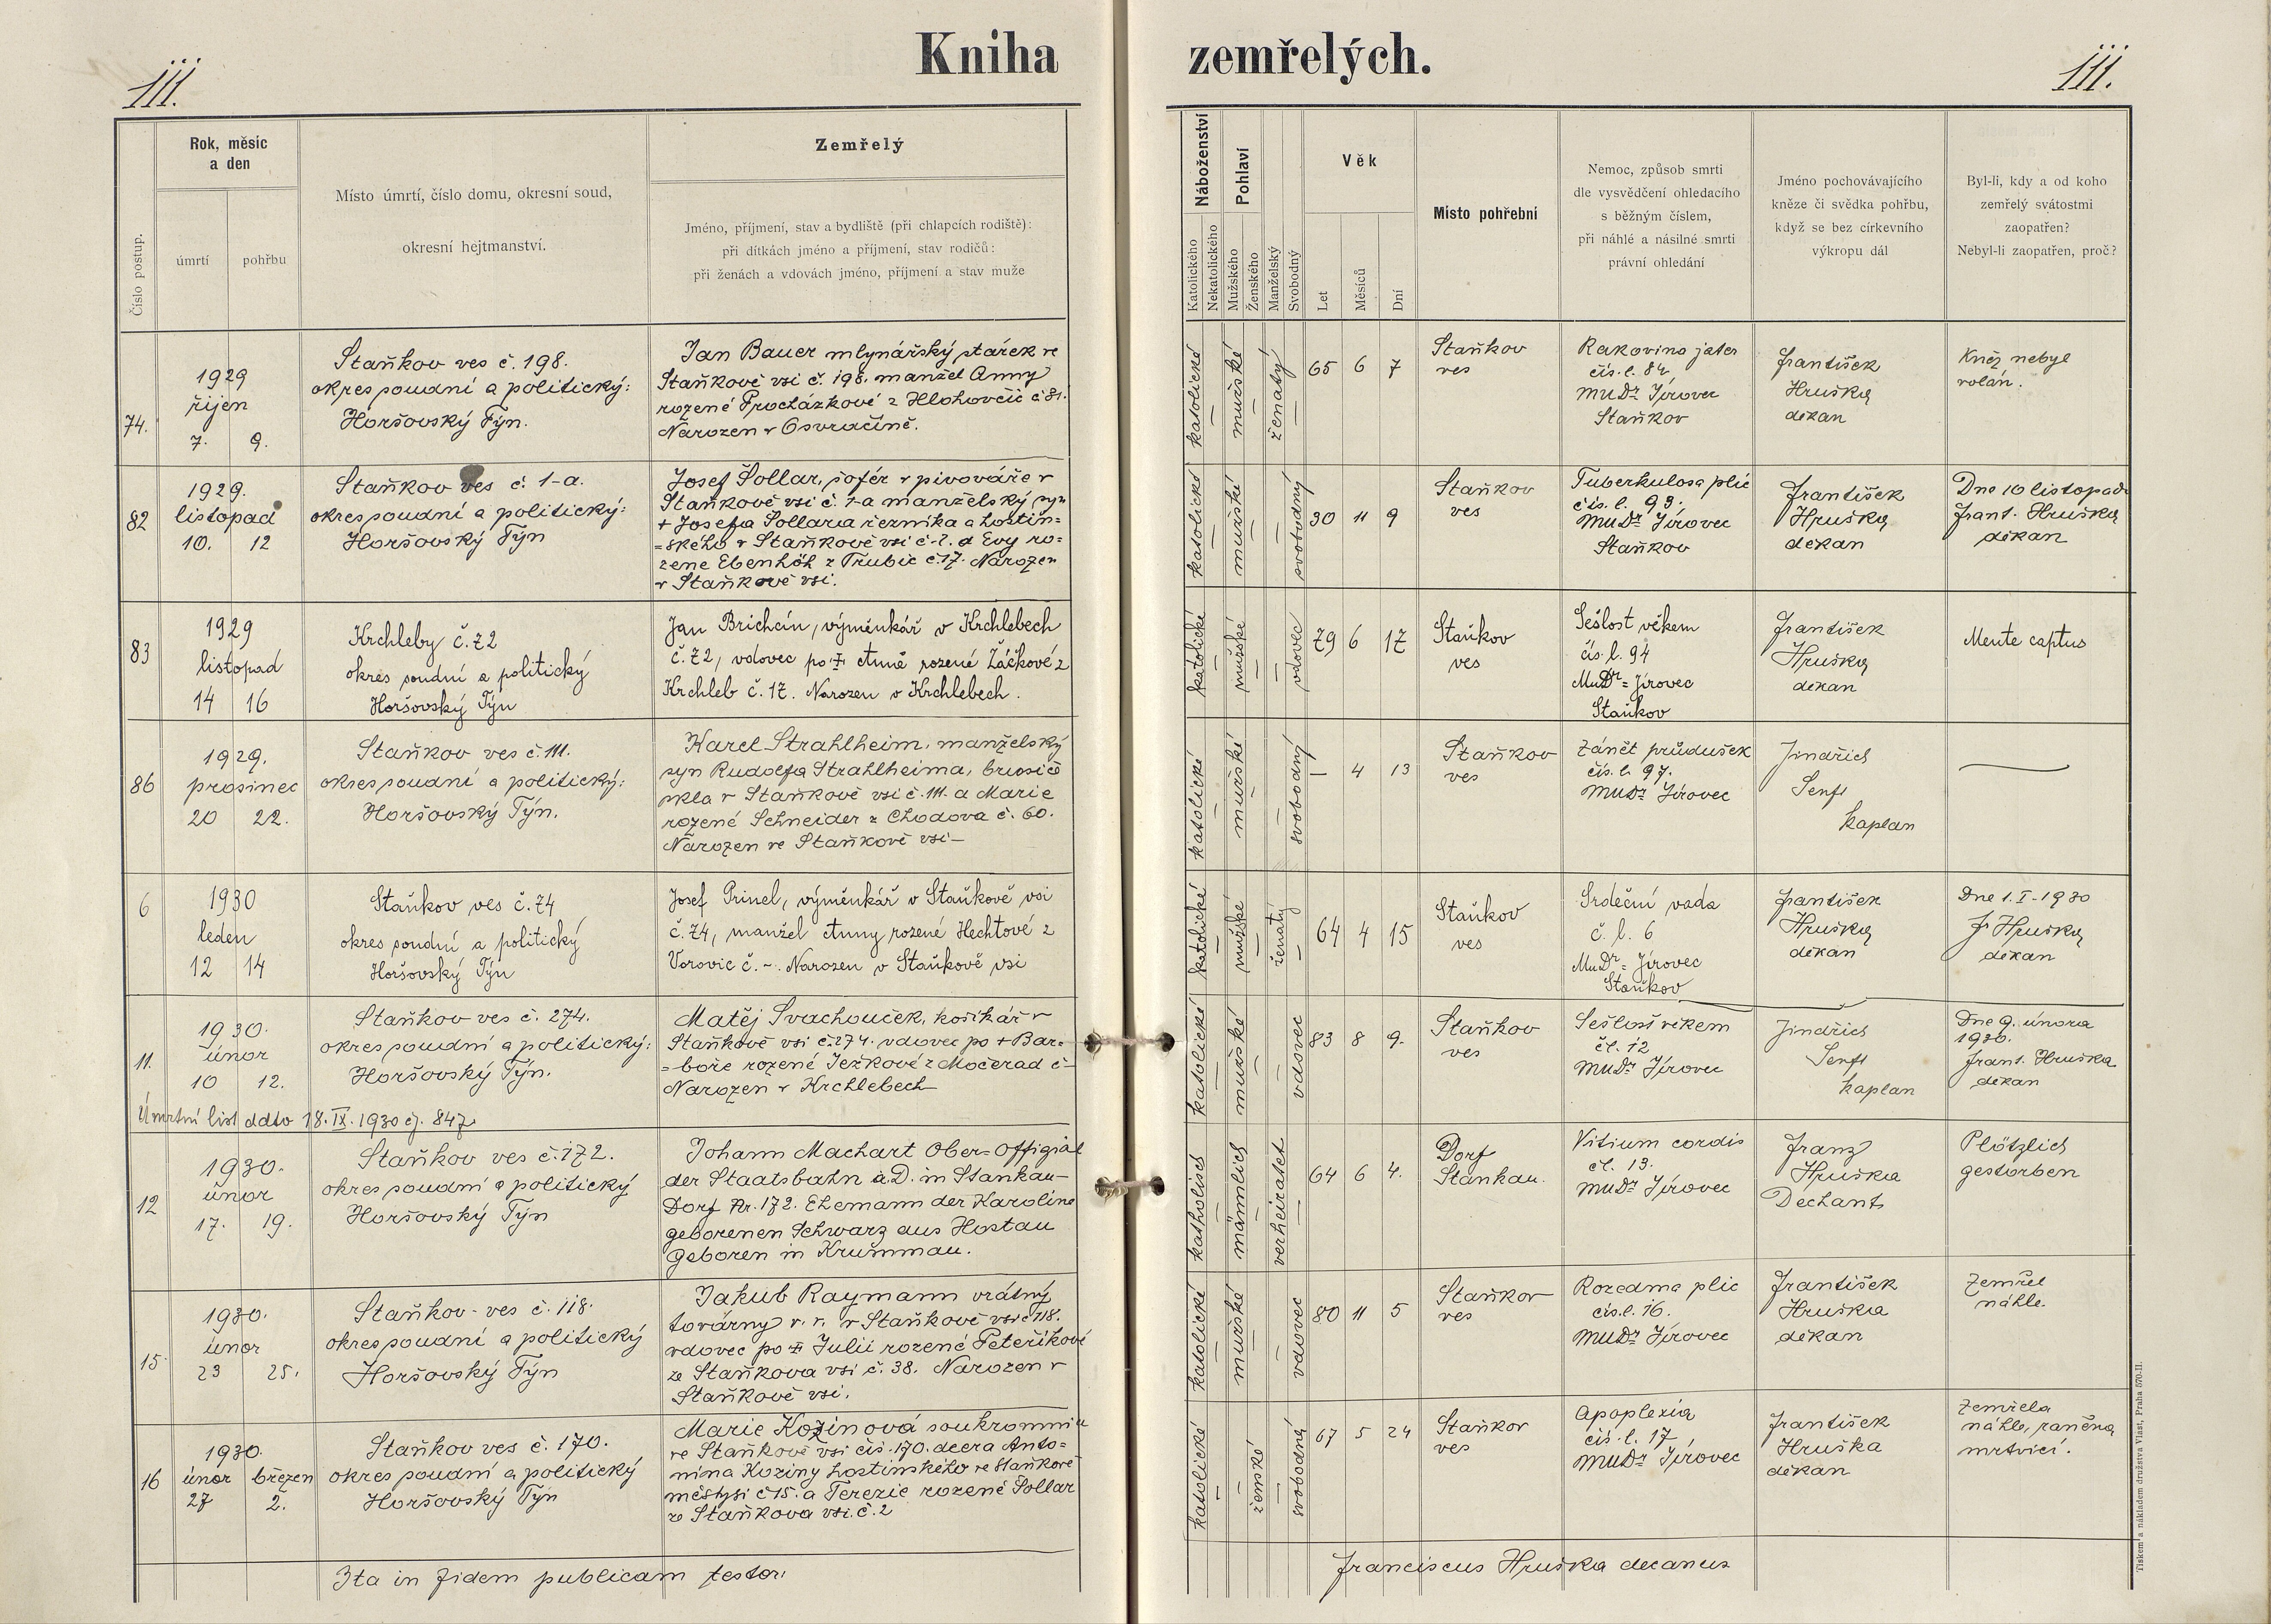 Kniha zemřelých.
111.
111.
Číslo postup.
Rok, měsíc
a den
úmrtí
pohřbu
Místo úmrtí, číslo domu, okresní soud,
okresní hejtmanství.
Zemřelý
Jméno, příjmení, stav a bydliště (při chlapcích rodiště):
při dítkách jméno a příjmení, stav rodičů:
při ženách a vdovách jméno, příjmení a stav muže
Náboženství
Katolického
Nekatolického
Pohlaví
Mužského
Ženského
Manželský
Svobodný
Věk
Let
Měsíců
Dní
Místo pohřební
Nemoc, způsob smrti
dle vysvědčení ohledacího
s běžným číslem,
při náhlé a násilné smrti
právní ohledání
Jméno pochovávajícího
kněze či svědka pohřbu,
když se bez církevního
výkropu dál
Byl-li, kdy a od koho
zemřelý svátostmi
zaopatřen?
Nebyl-li zaopatřen, proč?
74.
1929
říjen
7. 9.
Staňkov ves č. 198.
okres soudní a politický:
Horšovský Týn.
Jan Bauer mlynářský stárek ve
Staňkově vsi č. 198. manžel Anny
rozené Procházkové z Hlohovčic č 81.
Narozen v Osvračíně.
katolické
mužské
ženatý
65 6 7
Staňkov
ves
Rakovina jater
čís. l. 84
MUDr Jírovec
Staňkov
František
Hruška
děkan
Kněz nebyl
volán.
82
1929.
listopad
10. 12
Staňkov ves č. 1-a.
okres soudní a politický:
Horšovský Týn
Josef Šollar, šofér v pivováře v
Staňkově vsi č. 1-a manželský syn
+ Josefa Sollara řezníka a hostin=
=ského v Staňkově vsi č. 2. a Evy ro=
zené Ebenhöh z Trubic č. 17. Narozen
v Staňkově vsi.
katolické
mužské
svobodný
30 11 9
Staňkov
ves
Tuberkulosa plic
čís. l. 93.
MUDr Jírovec
Staňkov
František
Hruška
děkan
Dne 10 listopadu
Frant. Hruška
děkan
83
1929
listopad
14 16
Krchleby č. 72
okres soudní a politický
Horšovský Týn
Jan Brichcín, výměnkář v Krchlebech
č. 72, vdovec po ‡ Anně rozené Žáčkové z
Krchleb č. 17. Narozen v Krchlebech.
katolické
mužské
vdovec
79 6 17
Staňkov
ves
Sešlost věkem
čís. l. 94
MuDr = Jírovec
Staňkov
František
Hruška
děkan
Mente captus
86
1929.
prosinec
20 22.
Staňkov ves č. 111.
okres soudní a politický:
Horšovský Týn.
Karel Strahlheim, manželský
syn Rudolfa Strahlheima, brusiče
skla v Staňkově vsi č. 111. a Marie
rozené Schneider z Chodova č. 60.
Narozen ve Staňkově vsi –
katolické
mužské
svobodný
– 4 13
Staňkov
ves
Zánět průdušek
čís. l. 97.
MUDr Jírovec
Jindřich
Senft
kaplan
6
1930
leden
12 14
Staňkov ves č. 74
okres soudní a politický
Horšovský Týn
Josef Prinel, výměnkář v Staňkově vsi
č. 74, manžel Anny rozené Hechtové z
Vorovic č. –. Narozen v Staňkově vsi
katolické
mužské
ženatý
64 4 15
Staňkov
ves
Srdeční vada
č. l. 6
MuDr = Jírovec
Staňkov
František
Hruška
děkan
Dne 1. I – 1930
Fr Hruška
děkan
11.
1930.
únor
10 12.
Staňkov ves č. 274.
okres soudní a politický:
Horšovský Týn.
Matěj Svachouček, košíkář v
Staňkově vsi č. 274. vdovec po + Bar=
=boře rozené Ježkové z Močerad č –
Narozen v Krchlebech
katolické
mužské
vdovec
83 8 9.
Staňkov
ves
Sešlost věkem
čl. 12
MUDr Jírovec
Jindřich
Senft
kaplan
Dne 9. února
1930.
Frant. Hruška
děkan
Úmrtní list ddto 18. IX. 1930 čj. 847.
12
1930.
únor
17. 19.
Staňkov ves č. 172.
okres soudní a politický
Horšovský Týn
Johann Machart Ober-Offizial
der Staatsbahn a. D. in Stankau-
Dorf Nr. 172. Ehemann der Karoline
geborenen Schwarz aus Hostau
Geboren in Krummau.
katholisch
männlich
verheiratet
64 6 4.
Dorf
Stankau.
Vitium cordis
čl. 13.
MUDr Jírovec
Franz
Hruška
Dechant
Plötzlich
gestorben
15
1930.
únor
23 25.
Staňkov - ves č. 118.
okres soudní a politický
Horšovský Týn
Jakub Raymann vrátný
továrny v. v. v Staňkově vsi č 118.
vdovec po ‡ Julii rozené Peteříkové
ze Staňkova vsi č. 38. Narozen v
Staňkově vsi.
katolické
mužské
vdovec
80 11 5
Staňkov
ves
Rozedma plic
čís. l. 16.
MUDr Jírovec
František
Hruška
děkan
Zemřel
náhle.
16
1930.
únor březen
27 2.
Staňkov ves č. 170.
okres soudní a politický
Horšovský Týn
Marie Kozinová soukromnice
ve Staňkově vsi čís. 170. dcera Anto=
nína Koziny hostinského ve Staňkově
městysi č 15. a Terezie rozené Sollar
ze Staňkova vsi. č. 2
katolické
ženské
svobodná
67 5 24
Staňkov
ves
Apoplexia
čís. l. 17
MUDr Jírovec
František
Hruška
děkan
Zemřela
náhle, raněna
mrtvicí.
Ita in fidem publicam testor:
Franciscus Hruška decanus
Tiskem a nákladem družstva Vlast, Praha 570-II.